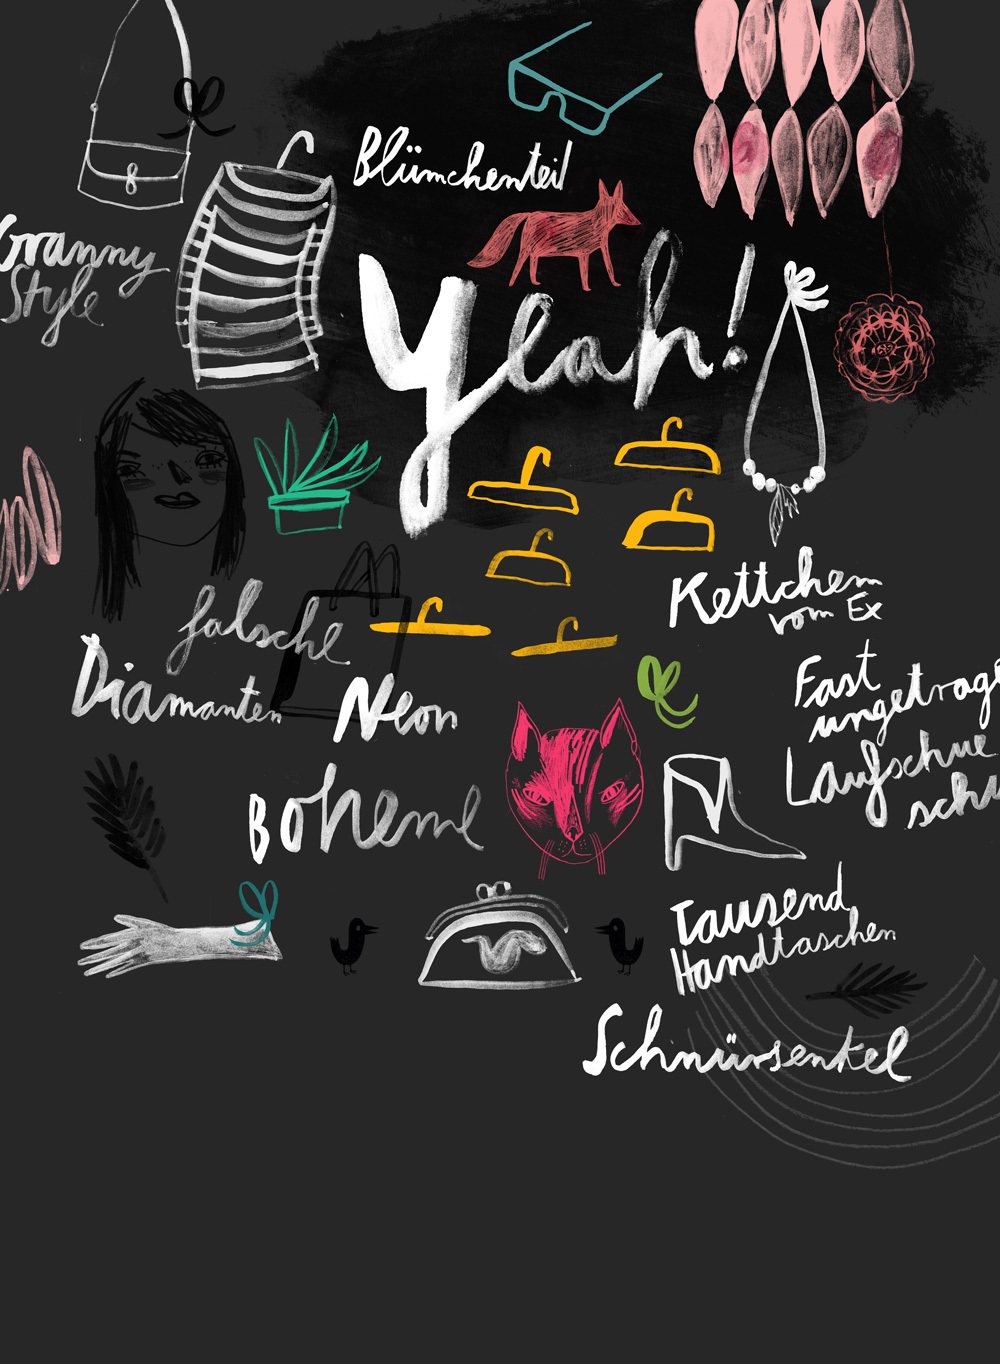 Blümchenteil
Granny
Style
Yeah!
Kettchen
vom Ex
falsche
Diamanten
Neon
Fast
ungetrage
Laufschue
schu
Boheme
Tausend
Handtaschen
Schnürsenkel